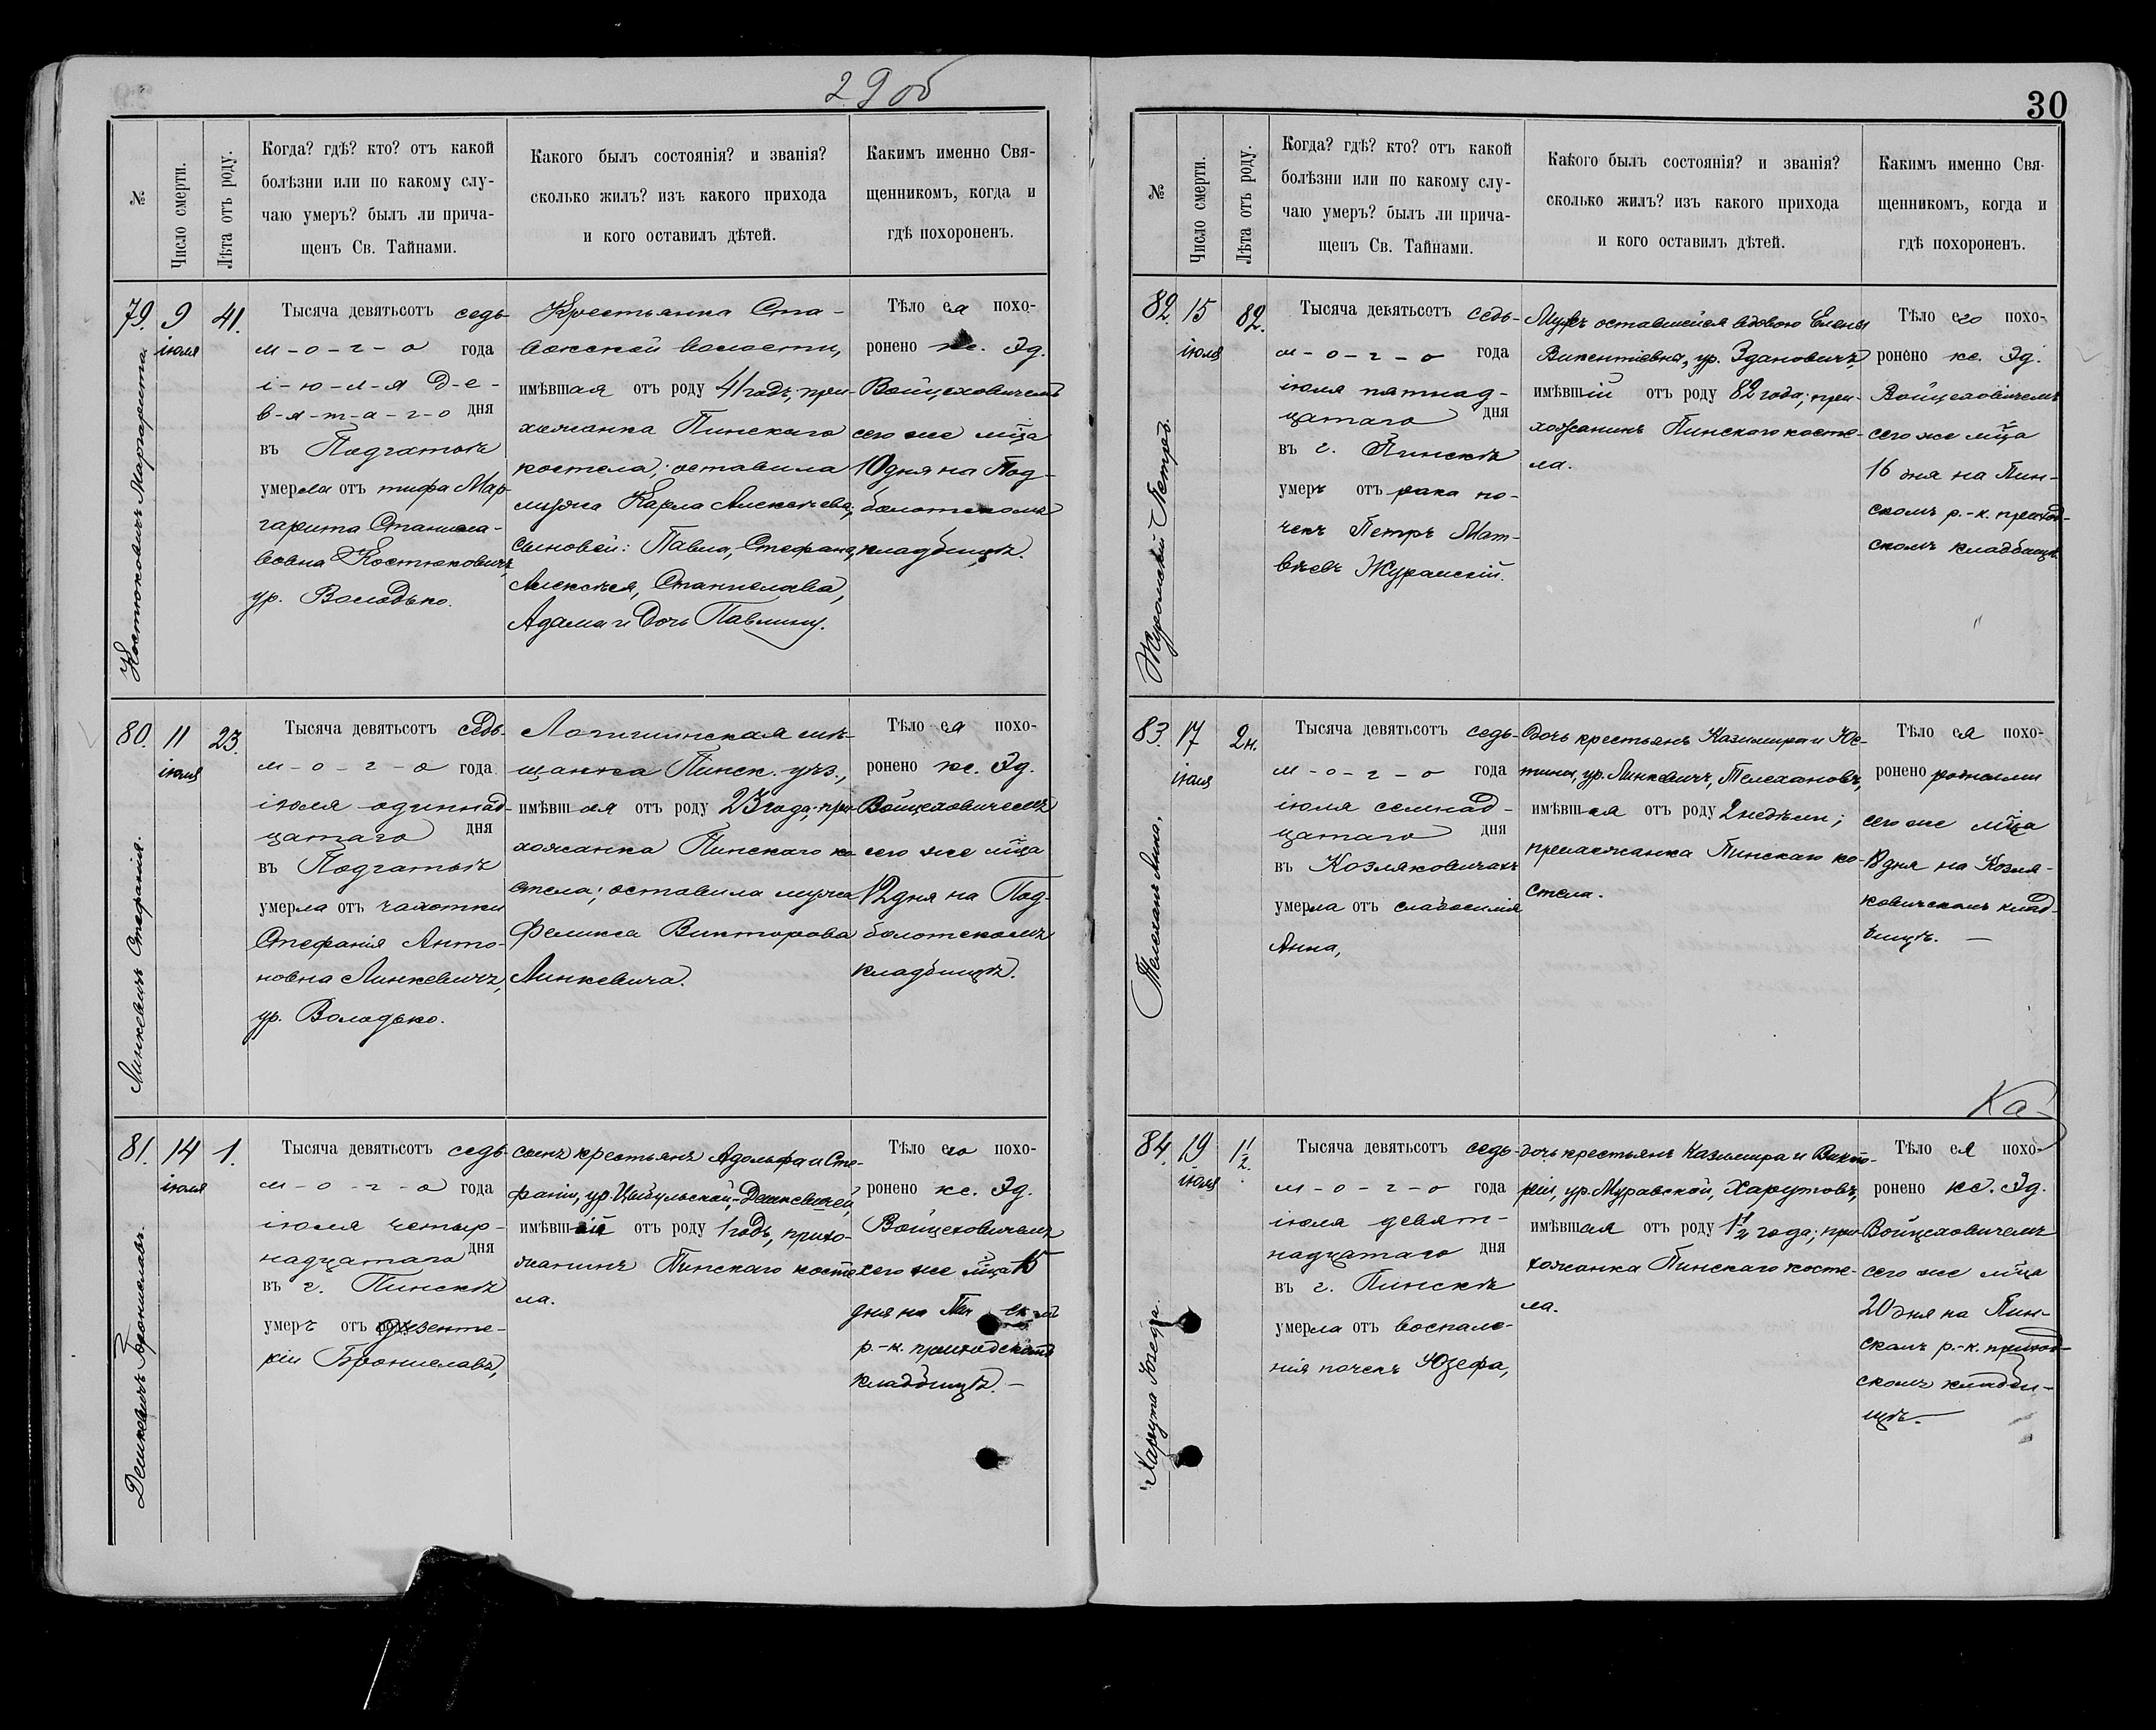 29 об
№
Число смерти.
Лѣта отъ роду.
Когда? гдѣ? кто? отъ какой
болѣзни или по какому слу-
чаю умеръ? былъ ли прича-
щенъ Св. Тайнами.
Какого былъ состоянія? и званія?
сколько жилъ? изъ какого прихода
и кого оставилъ дѣтей.
Какимъ именно Свя-
щенникомъ, когда и
гдѣ похороненъ.
79.
Костюковичъ Маргарита.
9
іюля
41.
Тысяча девятьсотъ седь-
м-о-г-о года
і-ю-л-я д-е-
в-я-т-а-г-о дня
въ Подгатьѣ
умерла отъ тифа Мар-
гарита Станисла-
вовна Костюковичъ,
ур. Володько.
Крестьянка Ста-
вокской волости,
имѣвшая отъ роду 41 годъ; при-
хожанка Пинскаго
костела; оставила
мужа Карла Алексѣева;
сыновей: Павла, Стефана,
Алексѣя, Станислава,
Адама и дочь Павлину.
Тѣло ея похо-
ронено кс. Эд.
Войцеховичемъ
сего же мѣсяца
10 дня на Под-
болотскомъ
кладбищѣ.
80.
Линкевичъ Стефанія.
11
іюля
23.
Тысяча девятьсотъ седь-
м-о-г-о года
іюля одиннад-
цатаго дня
въ Подгатьѣ
умерла отъ чахотки
Стефанія Анто-
новна Линкевичъ,
ур. Володько.
Логишинская мѣ-
щанка Пинск. уѣз.,
имѣвшая отъ роду 23 года; при-
хожанка Пинскаго ко-
стела; оставила мужа
Феликса Викторова
Линкевича.
Тѣло ея похо-
ронено кс. Эд.
Войцеховичемъ
сего же мѣсяца
12 дня на Под-
болотскомъ
кладбищѣ.
81.
Дешкевичъ Брониславъ.
14
іюля
1.
Тысяча девятьсотъ седь-
м-о-г-о года
іюля четыр-
надцатаго дня
въ г. Пинскѣ
умеръ отъ дизенте-
ріи Брониславъ,
сынъ крестьянъ Адольфа и Сте-
фаніи, ур. Цыбульской, Дешкевичей,
имѣвшій отъ роду 1 годъ, прихо-
жанинъ Пинскаго косте-
ла.
Тѣло его похо-
ронено кс. Эд.
Войцеховичемъ
сего же мѣсяца 15
дня на
р.-к. приходскомъ
кладбищѣ.—
30
№
Число смерти.
Лѣта отъ роду.
Когда? гдѣ? кто? отъ какой
болѣзни или по какому слу-
чаю умеръ? былъ ли прича-
щенъ Св. Тайнами.
Какого былъ состоянія? и званія?
сколько жилъ? изъ какого прихода
и кого оставилъ дѣтей.
Какимъ именно Свя-
щенникомъ, когда и
гдѣ похороненъ.
82.
Журомскій Петръ.
15
іюля
82.
Тысяча девятьсотъ седь-
м-о-г-о года
іюля пятнад-
цатаго дня
въ г. Пинскѣ
умеръ отъ рака по-
чекъ Петръ Мат-
вѣевъ Журомскій.
Мужъ оставшейся вдовою Елены
Викентіевны, ур. Здановичъ,
имѣвшій отъ роду 82 года; при-
хожанинъ Пинского косте-
ла.
Тѣло его похо-
ронено кс. Эд.
Войцеховичемъ
сего же мѣсяца
16 дня на Пин-
скомъ р.-к. приход-
скомъ кладбищѣ.
83.
Телеханъ Анна,
17
іюля
2 н.
Тысяча девятьсотъ седь-
м-о-г-о года
іюля семнад-
цатаго дня
въ Козляковичахъ
умерла отъ слабосилія
Анна,
дочь крестьянъ Казимира и Юс-
тины, ур. Линкевичъ, Телехановъ,
имѣвшая отъ роду 2 недѣли;
прихожанка Пинскаго ко-
стела.
Тѣло ея похо-
ронено родными
сего же мѣсяца
18 дня на Козля-
ковичскомъ клад-
бищѣ. —
Ка-
84.
Харута Юзефа.
19
іюля
1½.
Тысяча девятьсотъ седь-
м-о-г-о года
іюля девят-
надцатаго дня
въ г. Пинскѣ
умерла отъ воспале-
нія почекъ Юзефа,
дочь крестьянъ Казимира и Викто-
ріи, ур. Муравской, Харутовъ,
имѣвшая отъ роду 1½ года; при-
хожанка Пинскаго косте-
ла.
Тѣло ея похо-
ронено кс. Эд.
Войцеховичемъ
сего же мѣсяца
20 дня на Пин-
скомъ р.-к. приход-
скомъ кладби-
щѣ.—